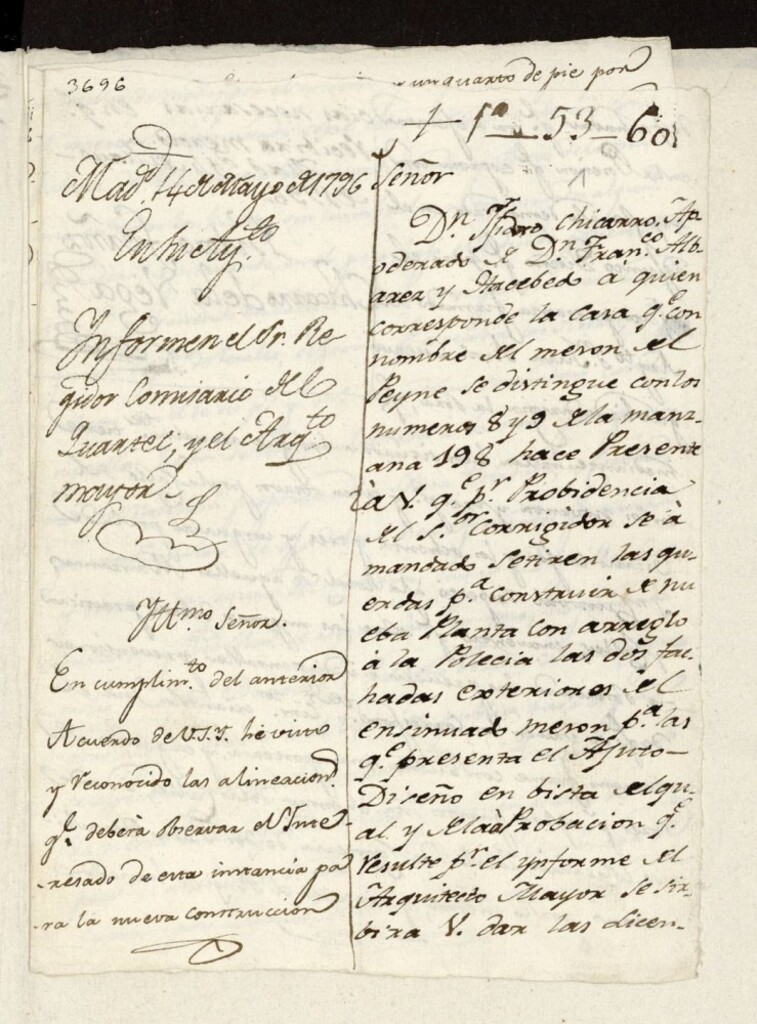 3696
un quarto de pie por
+ 1a 53-60
Madd. 14 de Mayo de 1796
En su Ayto
Informen el Sr. Re
gidor Comisario del
Quartel, y el Arqto
mayor
Yttmo Señor.
En cumplimto del anterior
Acuerdo de V.S.Y. he visto
y reconocido las alineaciones
qe. deberá observar el Inte-
resado de esta instancia pa
ra la nueva construccion
Señor
Dn Ysidro Chicarro, Ap
oderado de Dn Franco Alb
arez y Hacebedo a quien
corresponde la casa qe con
nombre del meson del
Peyne se distingue con los
numeros 8 y 9 de la manz-
ana 198 hace Presente
à V. qe pr Probidencia
del Sor Corrigidor se à
mandado setiren las qu-
erdas pa Construir de nu
eba Planta con arreglo
à la Polecia las dos fac-
hadas exteriores del
ensinuado meson pa las
qe presenta el Ajuto
Diseño en bista del qu-
al y de la àProbacion qe
resulte pr el ynforme del
Arquitecto Mayor se sir-
bira V. dar las licen-